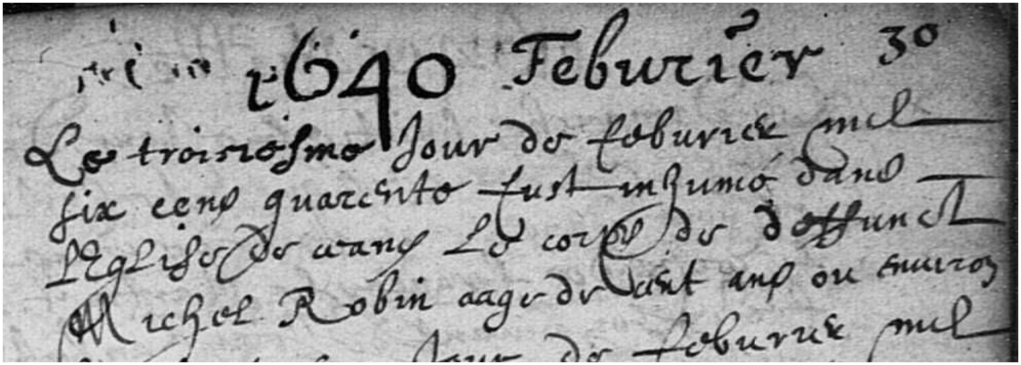 1640 Feburier 30
Le troisiesme Jour de feburier mil
six cens quarente fust inhumé dans
l'Eglise de Le corps de deffunct
Michel Robin aage de ans ou environ
Jour de feburier mil